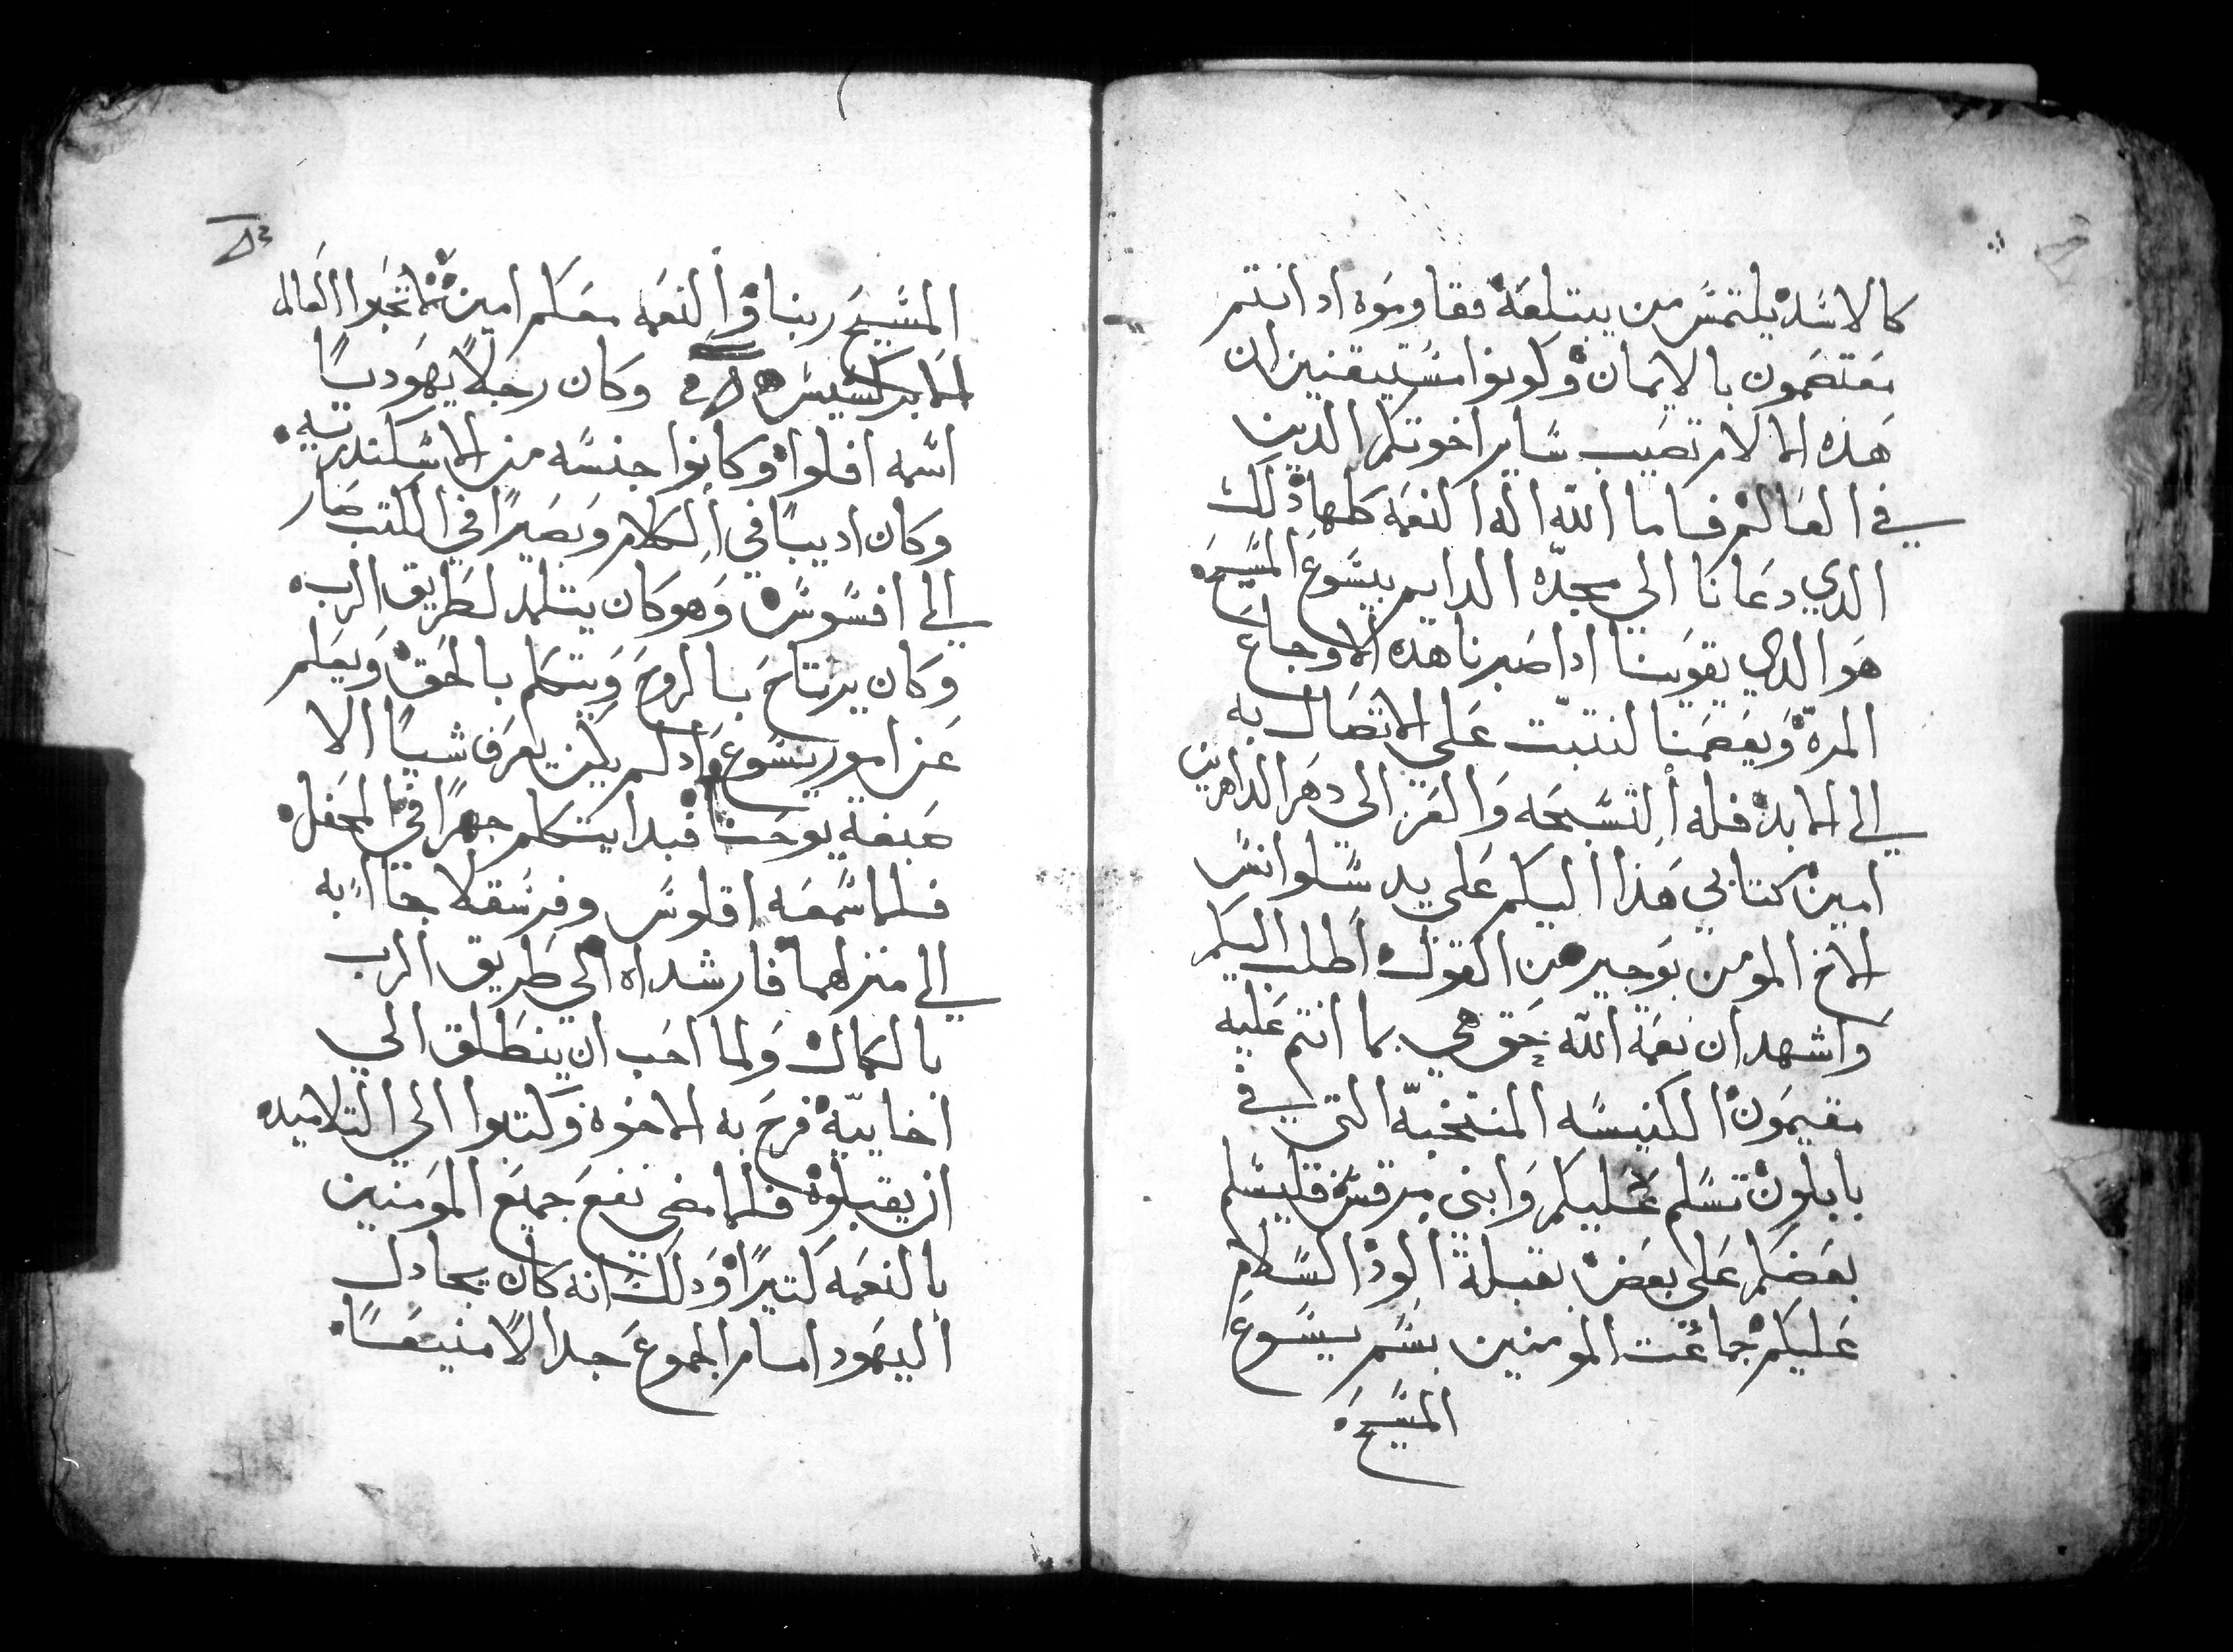 كالاسد يلتمس من يبتلعه فقاوموه اد انتم
معتصمون بالايمان وكونوا مستيقنين ان
هده الالام تصيب ساير اخوتكم الدين
في العالم فاما الله اله النعمه كلها دلك
الدي دعانا الي مجده الدايم بيسوع المسيح
هو الدي يقوينا ادا صبرنا هده الاوجاع
المرة ويعصمنا لنتبت علي الاتصال به
الي الابد فله التسبحه والعز الي دهر الداهرين
امين كتابي هذا اليكم علي يد سلوانس
الاخ المومن بوجيز من القول اطلب اليكم
واشهد ان نعمة الله حق هي بما انتم عليه
مقيمون الكنيسه المنتخبه التي في
بابلون تسلم عليكم وابني مرقس فليسلم
بعضكم علي بعض بقبلة الود السلام
عليكم جماعت المومنين بسم يسوع
المسيح
المسيح ربنا والنعمه معكم امين لا تحبوا العالم
الابركسيس وكان رجلاً يهوديًا
اسمه افلوا وكانوا جنسه من الاسكندريه
وكان اديبًا في الكلام وبصيرًا في الكتب صار
الي افسوس وهو كان يتلمد لطريق الرب
وكان يرتاح بالروح ويتكلم بالحق ويعلم
عن امور يسوع اد لم يكن يعرف شيا الا
صبغة يوحنا فبدا يتكلم جهرًا في المحفل
فلما سمعه اقلوس وفرسقلا جاا به
الي منزلهما فارشداه الي طريق الرب
بالكمال ولما احب ان ينطلق الي
اخاييه فرح به الاخوة وكتبوا الي التلاميده
ان يقبلوه فلما مضي نفع جميع المومنين
بالنعمه كتيرًا ودلك انه كان يجادل
اليهود امام الجموع جدالاً منيعًا